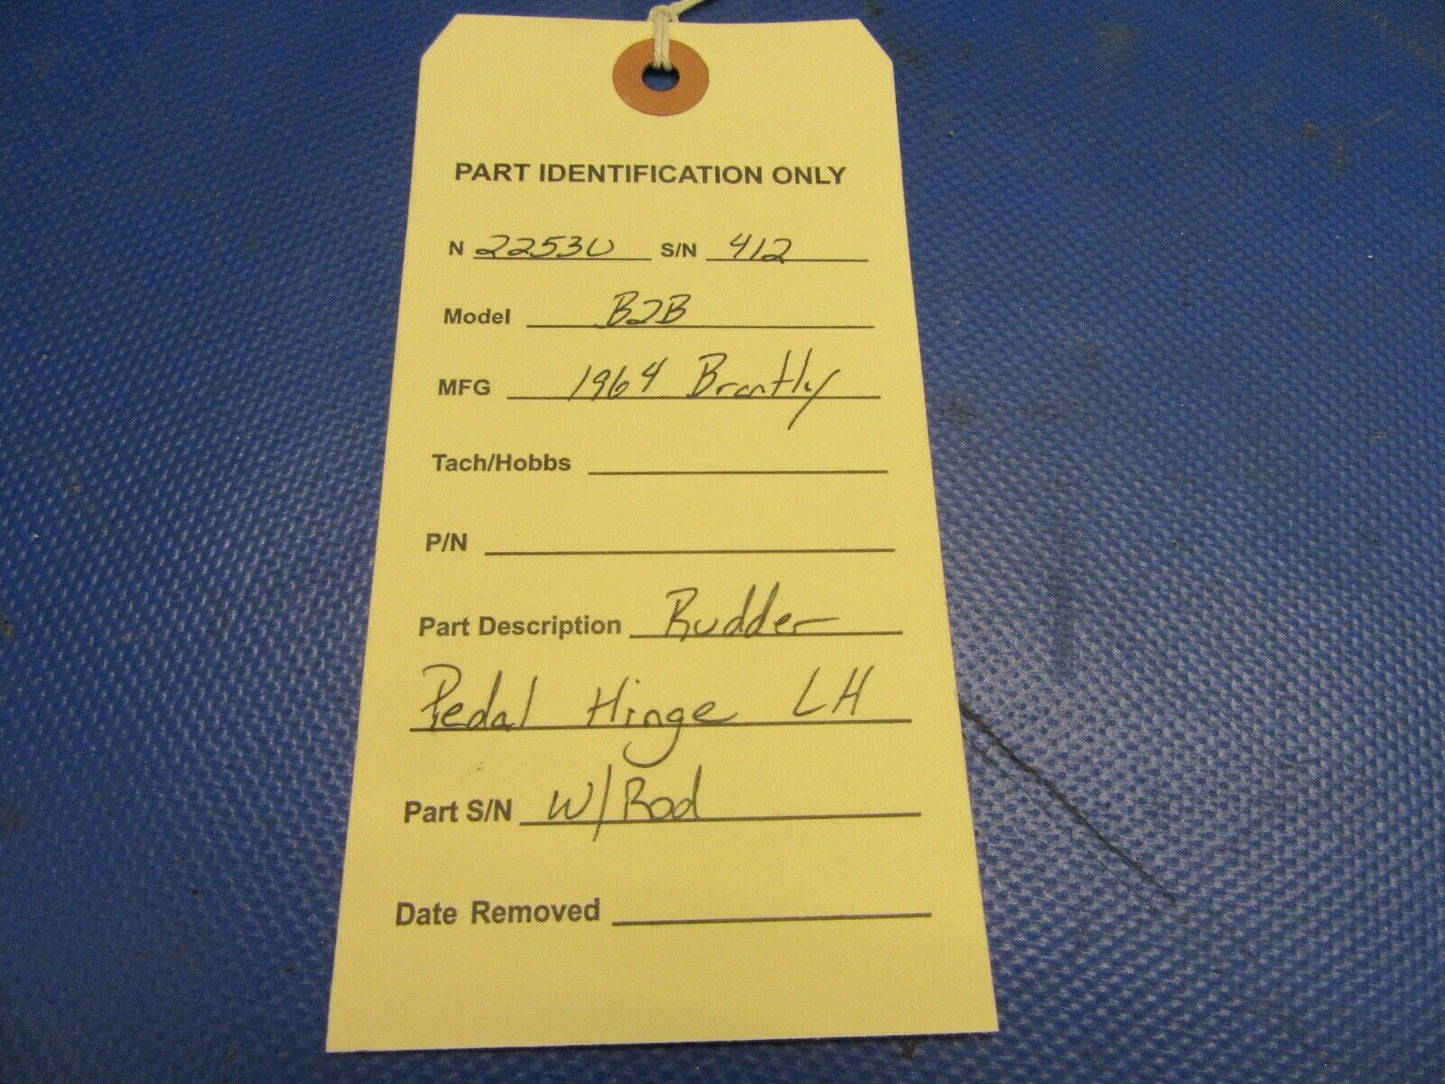 PART IDENTIFICATION ONLY
N 2253U S/N 412
Model B2B
MFG 1964 Brantly
Tach/Hobbs
P/N
Part Description Rudder
Pedal Hinge LH
Part S/N W/Rod
Date Removed